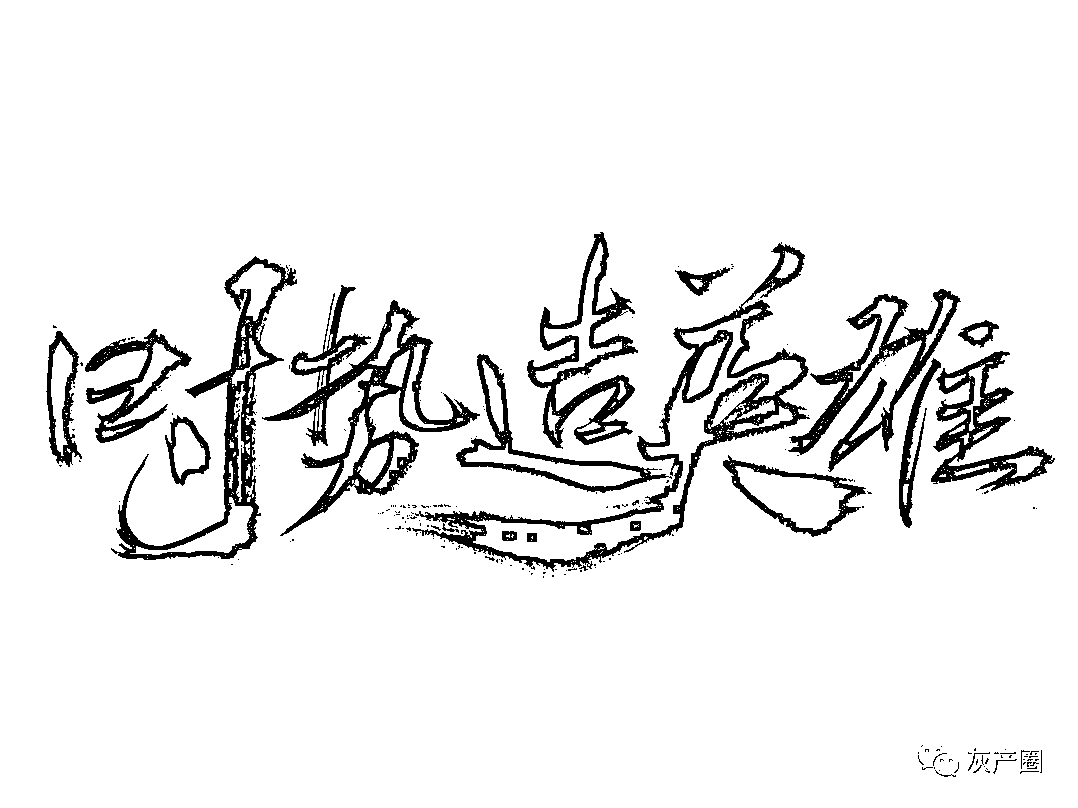 时势造英雄
灰产圈